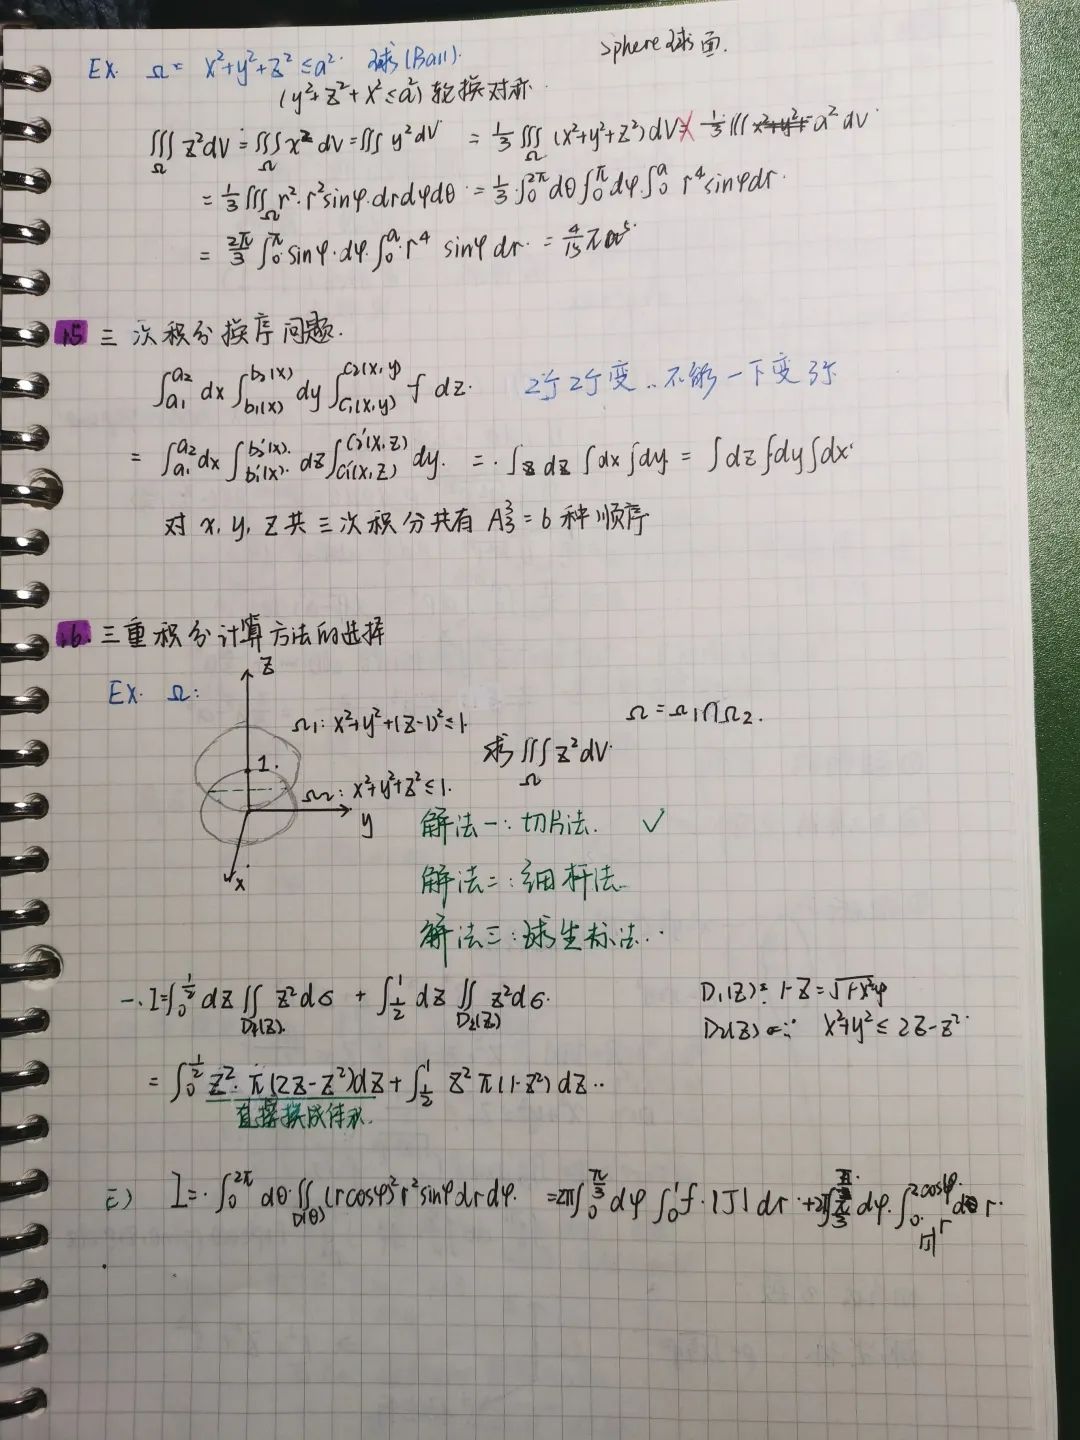 Sphere 球面.
EX. Ω = x²+y²+z² ≤ a². 球(Ball).
(y²+z²+x² ≤ a²) 轮换对称.
∭_Ω z²dV = ∭_Ω x² dV = ∭ y² dV = 1/3 ∭_Ω (x²+y²+z²)dV = 1/3 ∭ a² dV
= 1/3 ∭_Ω r²·r²sinφ·drdφdθ = 1/3·∫_0^{2π} dθ ∫_0^π dφ·∫_0^a r⁴sinφdr.
= 2π/3 ∫_0^π sinφ·dφ·∫_0^a r⁴ sinφ dr. = 4/15 πa⁵.
15 三次积分换序问题.
∫_{a₁}^{a₂} dx ∫_{b₁(x)}^{b₂(x)} dy ∫_{c₁(x,y)}^{c₂(x,y)} f dz. 2个2个变..不能一下变3个
= ∫_{a₁}^{a₂} dx ∫_{b₁'(x)}^{b₂'(x)} dz ∫_{c₁'(x,z)}^{c₂'(x,z)} dy. = ∫ dz ∫dx ∫dy = ∫dz ∫dy ∫dx
对 x, y, z 共三次积分共有 A₃³ = 6 种顺序
16. 三重积分计算方法的选择
EX. Ω:
z
Ω₁: x²+y²+(z-1)² ≤ 1. Ω = Ω₁∩Ω₂.
求 ∭_Ω z²dV.
1.
Ω₂: x²+y²+z² ≤ 1.
y
x
解法一: 切片法. ✓
解法二: 细杆法.
解法三: 球坐标法..
一. I = ∫_0^{1/2} dz ∬_{D₁(z)} z²dσ + ∫_{1/2}^1 dz ∬_{D₂(z)} z²dσ.
D₁(z): 1-z = √
D₂(z) x²+y² ≤ 2z-z².
= ∫_0^{1/2} z²·π(2z-z²)dz + ∫_{1/2}^1 z²π(1-z²)dz..
直接换成体积.
三) I = ∫_0^{2π} dθ·∬_{D(θ)} (rcosφ)²r²sinφdrdφ. = 2π∫_0^{π/3} dφ ∫_0^1 f·|J| dr + 2π∫_{π/3}^{π/2} dφ·∫_0^{2cosφ} dr.